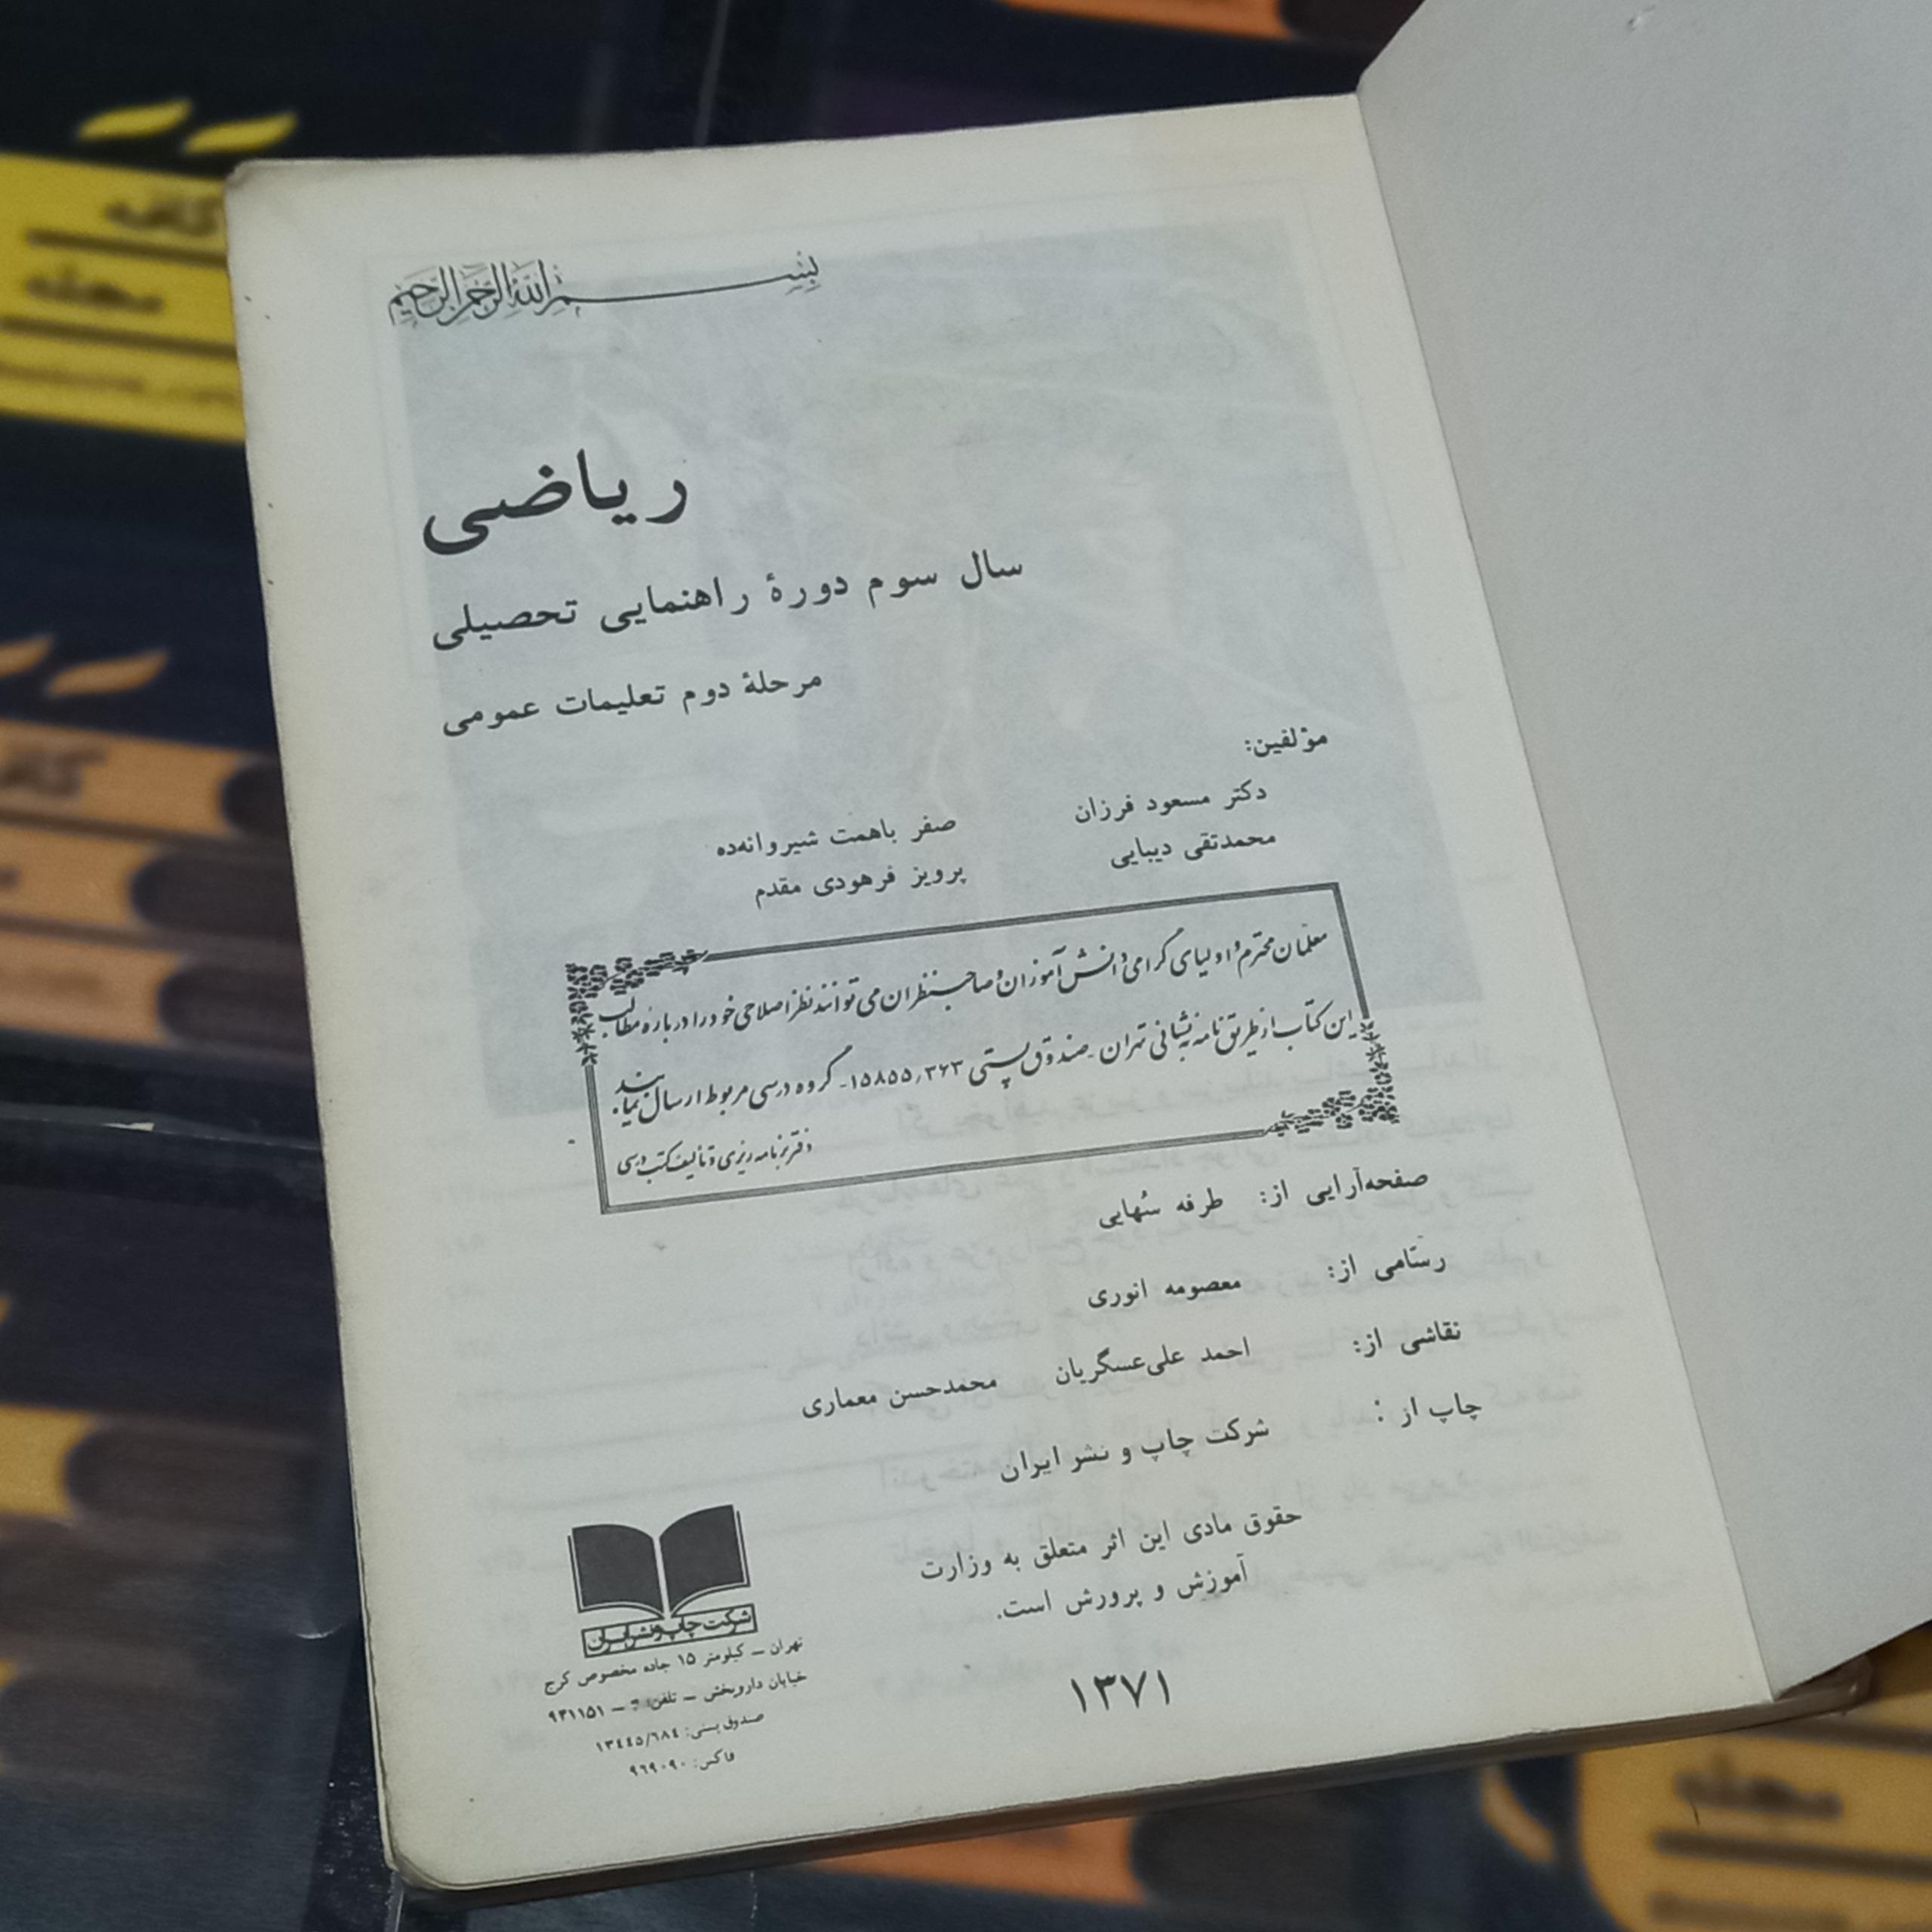 بسم الله الرحمن الرحیم
ریاضی
سال سوم دورهٔ راهنمایی تحصیلی
مرحلهٔ دوم تعلیمات عمومی
مؤلفین:
دکتر مسعود فرزان صفر باهمت شیروانه‌ده
محمدتقی دیبایی پرویز فرهودی مقدم
معلمان محترم و اولیای گرامی دانش‌آموزان و صاحبنظران می‌توانند نظر اصلاحی خود را دربارهٔ مطالب
این کتاب از طریق نامه به نشانی تهران - صندوق پستی ۱۵۸۵۵/۳۶۳ - گروه درسی مربوط ارسال نمایند
دفتر برنامه‌ریزی و تألیف کتب درسی
صفحه‌آرایی از: طرفه سُهایی
رسّامی از: معصومه انوری
نقاشی از: احمد علی‌عسگریان محمدحسن معماری
چاپ از: شرکت چاپ و نشر ایران
حقوق مادی این اثر متعلق به وزارت
آموزش و پرورش است.
۱۳۷۱
شرکت چاپ و نشر ایران
تهران – کیلومتر ۱۵ جاده مخصوص کرج
خیابان داروپخش – تلفن: – ۹۳۱۱۵۱
صندوق پستی: ۱۳٤٤۵/٦۸٤
فاکس: ۹٦۹۰۹۰
کافه
مجله
کافه
مجله